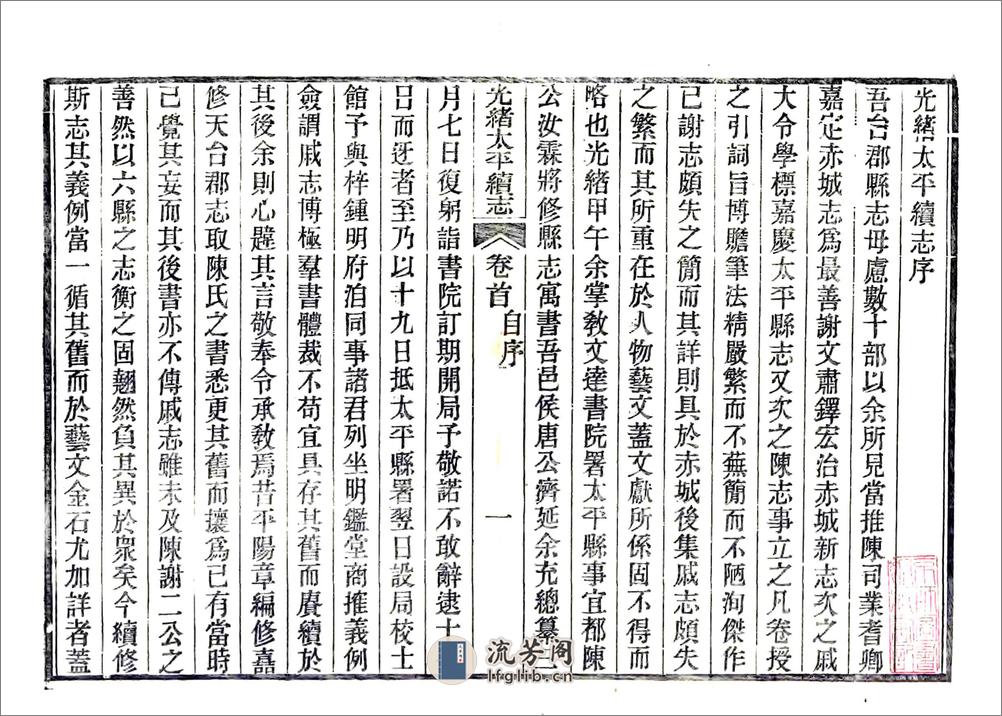 光緒太平續志序
吾台郡縣志毋慮數十部以余所見當推陳司業耆卿
嘉定赤城志爲最善謝文肅鐸宏治赤城新志次之戚
大令學標嘉慶太平縣志又次之陳志事立之凡卷授
之引詞旨博贍筆法精嚴繁而不蕪簡而不陋洵傑作
已謝志頗失之簡而其詳則具於赤城後集戚志頗失
之繁而其所重在於人物藝文蓋文獻所係固不得而
略也光緒甲午余掌敎文達書院署太平縣事宜都陳
公汝霖將修縣志寓書吾邑侯唐公濟延余充總纂二
光緒太平續志
卷首
自序
一
月七日復躬詣書院訂期開局予敬諾不敢辭逮十
日而迓者至乃以十九日抵太平縣署翌日設局校士
館予與梓鍾明府洎同事諸君列坐明鑑堂商搉義例
僉謂戚志博極羣書體裁不苟宜具存其舊而賡續於
其後余則心韙其言敬奉令承敎焉昔平陽章編修嘉
修天台郡志取陳氏之書悉更其舊而攘爲己有當時
已覺其妄而其後書亦不傳戚志雖未及陳謝二公之
善然以六縣之志衡之固翹然負其異於衆矣今續修
斯志其義例當一循其舊而於藝文金石尤加詳者蓋
流芳閣
lfglib.cn